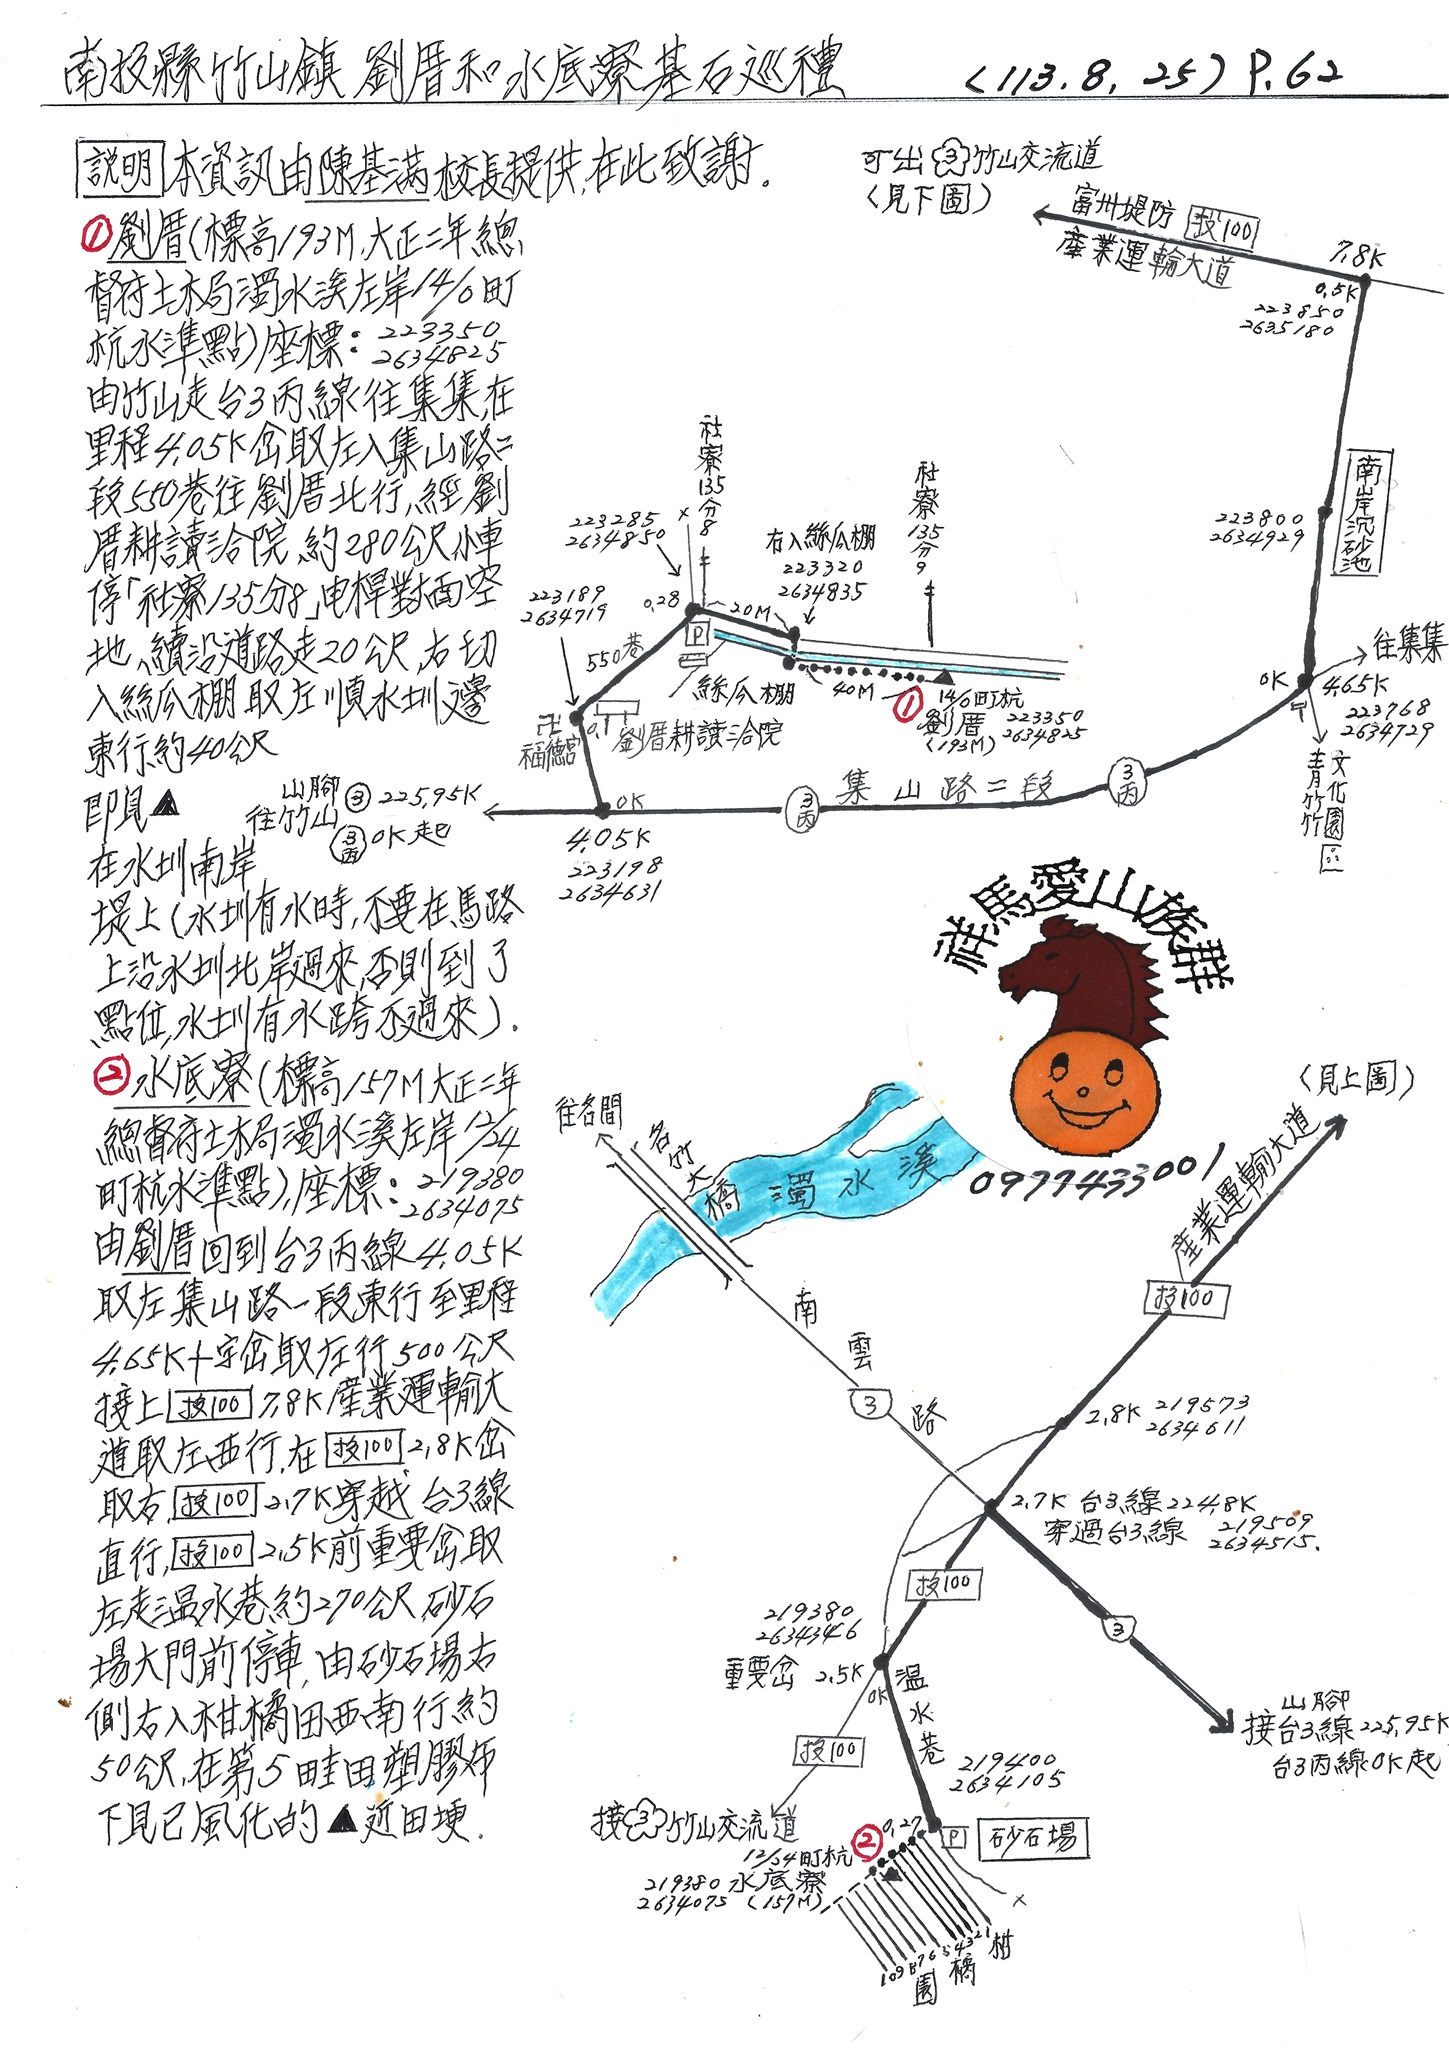 南投縣竹山鎮 劉厝和水底寮基石巡禮 (113.8.25) P.62
説明 本資訊由陳基滿校長提供,在此致謝。
① 劉厝(標高193M,大正二年總
督府土木局濁水溪左岸14/6町
杭水準點)座標:223350
2634825
由竹山走台3丙線往集集,在
里程4.05K岔取左入集山路二
段550巷往劉厝北行,經劉
厝耕讀三合院,約280公尺小車
停「社寮135分8」电桿對面空
地、續沿道路走20公尺,右切
入絲瓜棚取左順水圳邊
東行約40公尺
即見▲
在水圳南岸
堤上(水圳有水時,不要在馬路
上沿水圳北岸過來,否則到了
點位,水圳有水跨不過來).
② 水底寮(標高157M大正二年
總督府土木局濁水溪左岸12/24
町杭水準點),座標:219380
2634075
由劉厝回到台3丙線4.05K
取左集山路一段東行至里程
4.65K十字岔取左行500公尺
接上投100 7.8K產業運輸大
道取左西行,在投100 2.8K岔
取右,投100 2.7K穿越台3線
直行,投100 2.5K前重要岔取
左走温水巷約270公尺砂石
場大門前停車,由砂石場右
側右入柑橘田西南行約
50公尺,在第5畦田塑膠布
下見已風化的▲近田埂.
可出3竹山交流道
(見下圖)
富州堤防 投100
產業運輸大道
7.8K
0.5K
223850
2635180
南岸沉砂池
223800
2634929
往集集
0K
4.65K
223768
2634729
青竹竹
文化園區
社寮135分8
社寮135分9
223285
2634850
右入絲瓜棚
223320
2634835
0.28
20M
P
223189
2634719
550巷
絲瓜棚
40M
①
14/6町杭
劉厝
(193M)
223350
2634825
卍
福德宮
0.1
劉厝耕讀三合院
山腳
往竹山
3 225.95K
3丙 0K起
0K
4.05K
223198
2634631
3丙
集山路二段
3丙
祥馬愛山族群
0977433001
(見上圖)
往名間
名竹大橋
濁水溪
產業運輸大道
投100
南雲路
3
2.8K 219573
2634611
2.7K 台3線224.8K
穿過台3線 219509
2634515.
投100
3
219380
2634346
重要岔 2.5K
0K
温水巷
投100
接3竹山交流道
山腳
接台3線225.95K
台3丙線0K起
219400
2634105
0.27
P
砂石場
②
12/24町杭
219380 水底寮
2634075 (157M)
10 9 8 7 6 5 4 3 2 1
柑橘園